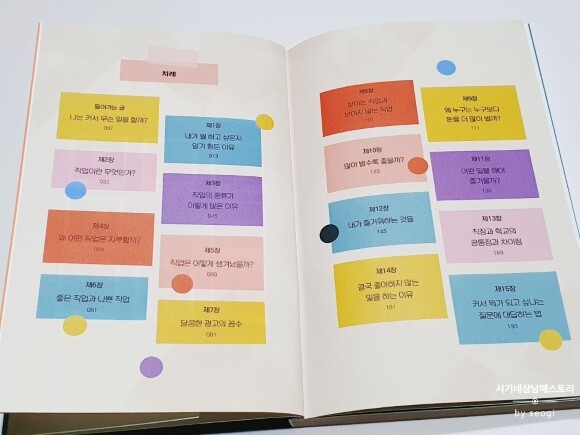 차례
들어가는 글
나는 커서 무슨 일을 할까?
007
제1장
내가 뭘 하고 싶은지
알기 힘든 이유
013
제2장
직업이란 무엇인가?
033
제3장
직업의 종류가
이렇게 많은 이유
045
제4장
왜 어떤 직업은 지루할까?
059
제5장
직업은 어떻게 생겨났을까?
069
제6장
좋은 직업과 나쁜 직업
081
제7장
달콤한 광고의 꼼수
091
제8장
보이는 직업과
보이지 않는 직업
101
제9장
왜 누구는 누구보다
돈을 더 많이 벌까?
111
제10장
많이 벌수록 좋을까?
123
제11장
어떤 일을 해야
즐거울까?
135
제12장
내가 즐거워하는 것들
145
제13장
직장과 학교의
공통점과 차이점
169
제14장
결국 좋아하지 않는
일을 하는 이유
181
제15장
커서 뭐가 되고 싶냐는
질문에 대답하는 법
193
서기네삼남매스토리
by seogi